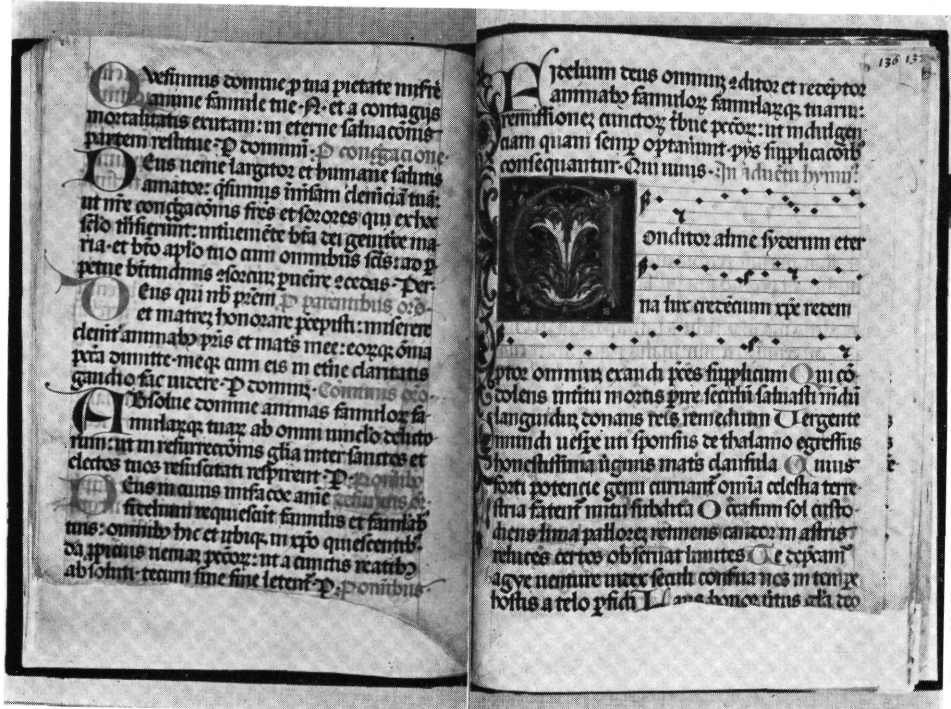 Quesumus domine p tua pietate misere
anime famule tue · N · et a contagijs
mortalitatis exutam : in eterne saluacōnis
partem restitue · P dominū · P cong̃gacione ·
Deus uenie largitor et humane salutis
amator : q̄sumus inm̄sam clem̄ciā tuā :
ut nr̄e cong̃gacōnis fr̄es et sorores qui ex hoc
sc̄lo tn̄sierunt : intueniēte bt̄a dei genitͥce ma
ria · et bt̄o ap̄lo tuo cum omnibus sc̄is : ad p̱
petue bt̄itudinis ꝯsorciū puenire ꝯcedas · Per ·
Deus qui nb̄ pr̄em P parentibus oro ·
et matreꝫ honorare p̄cepisti : miserere
clenit̄ animabꝫ pr̄is et mat̄s mee : eorꝙ om̄ia
pc̄c̄a dimitte · meqꝫ cum eis in et̄ne claritatis
gaudio fac uiuere · P dominū · Communis oro ·
Absolue domine animas famuloꝝ fa
mularꝙ tuaꝝ ab omni uinclo delicto
rum : ut in resurreccōnis gl̄ia inter sanctos et
electos tuos resuscitati respirent · P · P omnibꝫ
Deus in cuius mis̄acōe anīe
fidelium requiescūt famulis et famulab̄
tuis : omnibꝫ hic et ubiqꝫ in xp̄o quiescentib̄ ·
da ꝓpicius ueniaꝫ pc̄c̄oꝝ : ut a cunctis reatibꝫ
absoluti · tecum sine fine letent̄ · P · P omnibus ·
136 137
Fidelium deus omniuꝫ ꝯditor et recēptor
animabꝫ famuloꝝ famularꝙ tuarū :
remissioneꝫ cunctoꝝ tͥbue pc̄c̄oꝝ : ut indulgen
ciam quam semp̱ optarūnt · pijs supplicacōib̄
consequantur · Qui uiuis · In aduētu hymn̄ :
onditor alme syderum eter
na lux credēcium xp̄e redem
ptor omniuꝫ exaudi p̄ces supplicum Qui cō
dolens intītu mortis p̱ire seculū saluasti mūdū
languiduꝫ donans reis remedium Uergente
mundi uesp̱e uti sponsus de thalamo egressus
honestissima uͥginis mat̄s clausula Cuius
forti potencie genu curuant̄ om̄ia celestia terre
stria fatent̄ nutu subdita Occasum sol custo
diens luna palloreꝫ retinens candor in astris
relucēs certos obseruat limites Te dep̄camʾ
agye uenture iudex seculi conserua nos in temp̱e
hostis a telo p̱fidi Laus honor uirtus gl̄ia deo